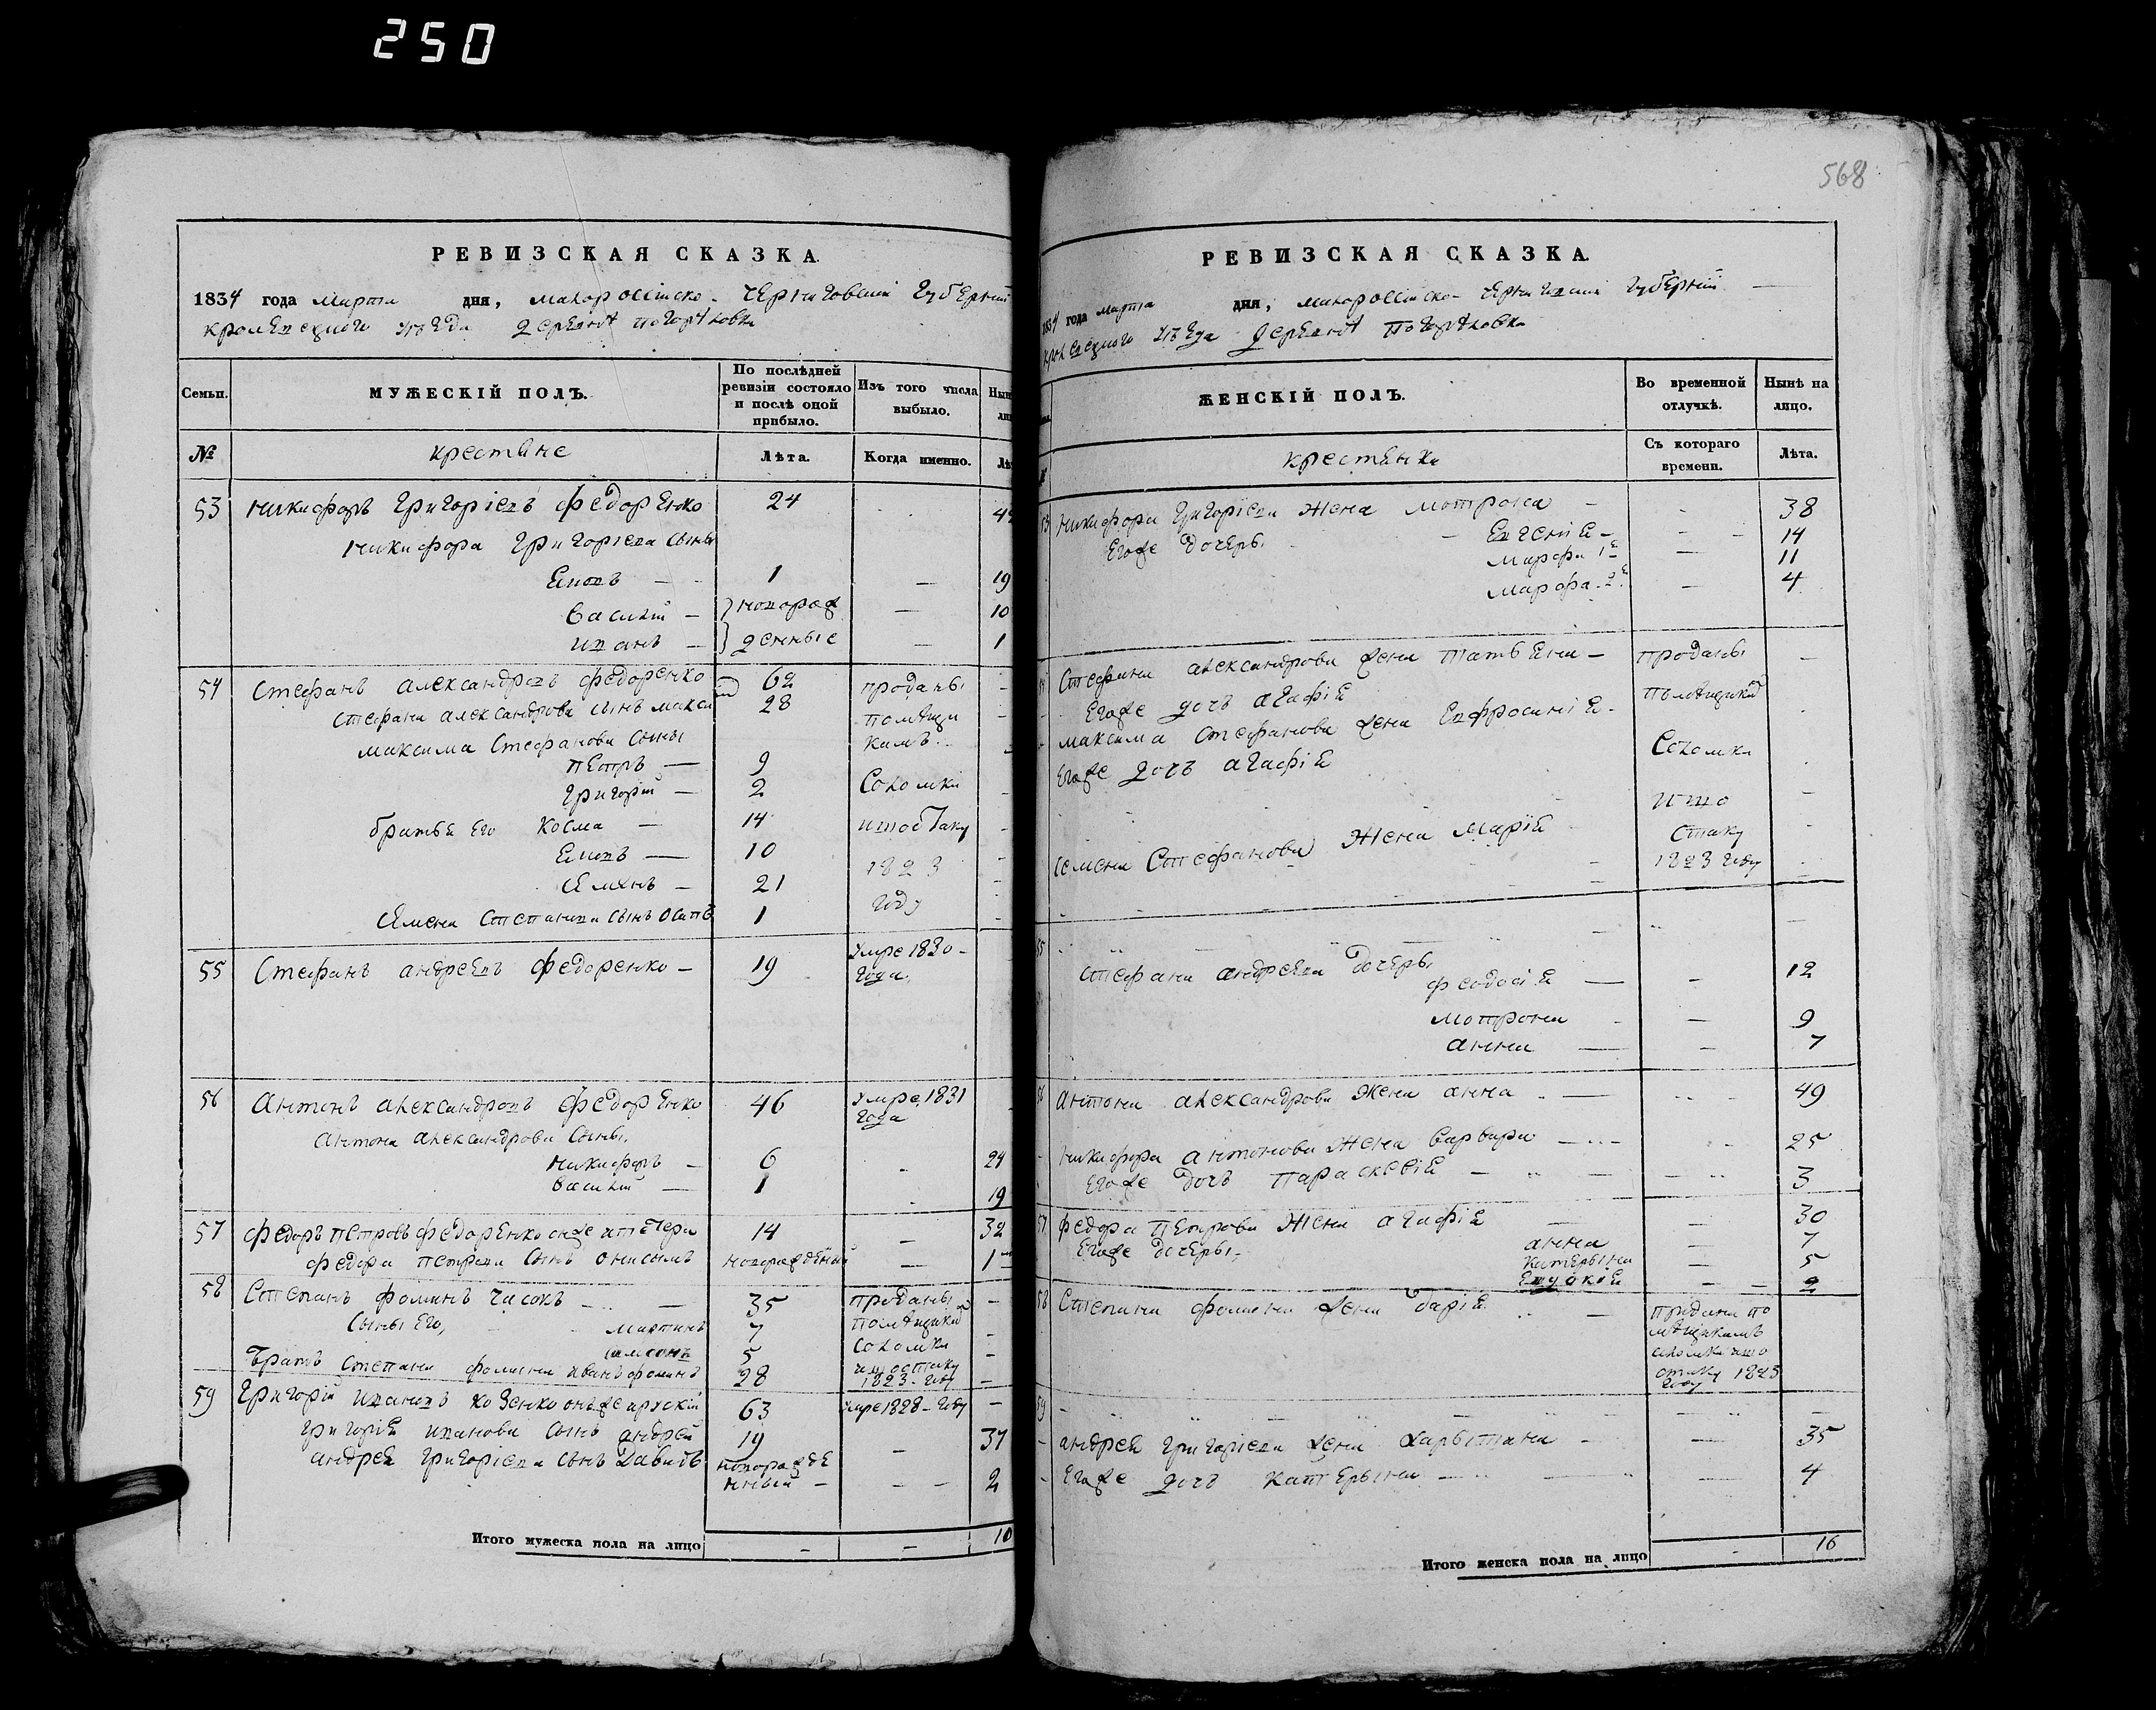 250
568
РЕВИЗСКАЯ СКАЗКА.
1834 года марта дня, малороссійско-черниговской губерній
кролевецкого уѣзда деревнѣ погорѣловки
Семьи.
МУЖЕСКІЙ ПОЛЪ.
По послѣдней ревизіи состояло и послѣ оной прибыло.
Изъ того числа выбыло.
№
крестяне
Лѣта.
Когда именно.
53 Никифоръ Григоріевъ Федоренко 24
Никифора Григоріева сыны
1 — 19
Василій — новорож — 10
иванъ — денные — 1
54 Стефанъ александровъ федоренко 62 проданы
Стефана александрова сынъ макси 28 помѣщи
максима Стефанова сыны камъ
петръ — 9
григорій — 2 Соломки
братья его Косма — 14
10 1823
21 году
1
55 Стефанъ андреевъ Федоренко — 19 умре 1830 года.
56 Антонъ александровъ Федоренко 46 умре 1831 года
Антона александрова сыны.
никифоръ — 6 24
василій — 1 19
57 федоръ петровъ федоренко 14 — 32
федора петрова сынъ онисимъ новорожденный — 1
58 Степанъ фоминъ часокъ — 35 проданы
сыны его, мартинъ 7
5 соломки
братъ степана фомина иванъ фоминъ 28 1823 году
59 Григорій ивановъ козенко 63 умре 1828 году
григорія иванова сынъ андрей 19 — 37
андрея григоріева сынъ Давидъ новорожде
нный — 2
Итого мужеска пола на лицо — — 10
РЕВИЗСКАЯ СКАЗКА.
1834 года марта дня, малороссійско-черниговской губерній
кролевецкого уѣзда деревнѣ погорѣловки
ЖЕНСКІЙ ПОЛЪ.
Во временной отлучкѣ.
Нынѣ на лицо.
крестянки
Съ котораго времени.
Лѣта.
53 Никифора григоріева жена мотрона — 38
Егоже дочеры Евгенія — 14
марфа 1я — 11
марфа 2я — 4
Стефана александрова жена татьяна — проданы
Егоже дочъ агафія
максима стефанова жена Евфросинія
Егоже дочъ агафія Соломки
Семена Стефанова жена марія 1823 году
55
Стефана андреева дочеры
феодосія — 12
мотрона — 9
анна — 7
56 Антона александрова жена анна — 49
никифора антонова жена варвара — 25
Егоже дочъ параскевія — 3
57 федора петрова жена агафія — 30
Егоже дочеры. анна — 7
катерына — 5
2
58 Степана фомина жена дарія
1823 году
59
андрея григоріева жена — 35
Егоже дочъ катерына — 4
Итого женска пола на лицо — 16